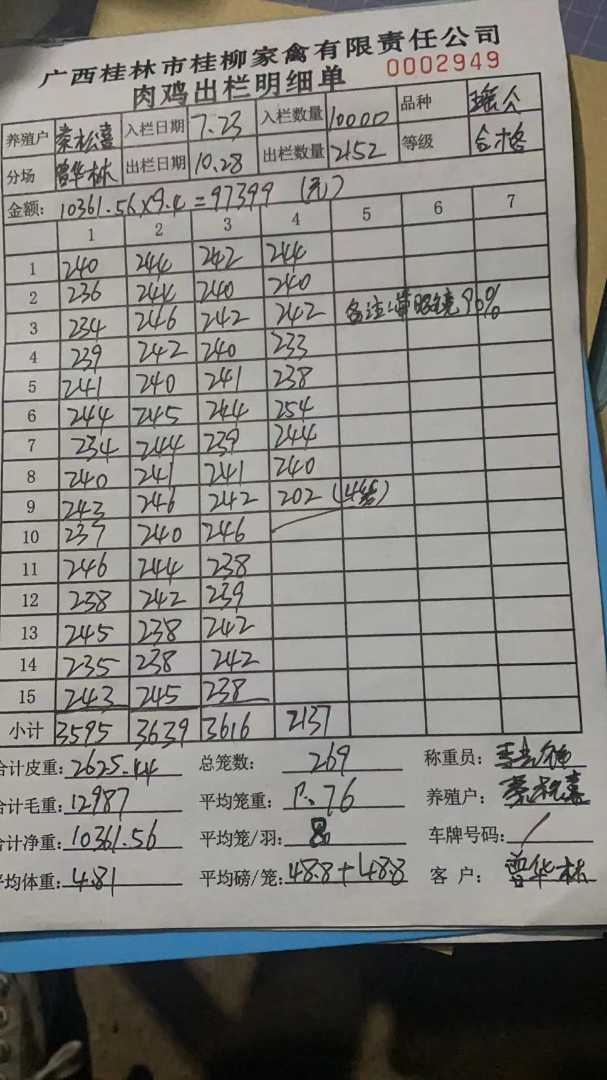 广西桂林市桂柳家禽有限责任公司
肉鸡出栏明细单 0002949
养殖户 秦松喜 入栏日期 7.23 入栏数量 10000 品种 瑶公
分场 曾华林 出栏日期 10.28 出栏数量 2152 等级 合格
金额: 10361.56×9.4=97399 (元)
1 2 3 4 5 6 7
1 240 244 242 244
2 236 244 240 240
3 234 246 242 242 备注: 眼镜90%
4 239 242 240 233
5 241 240 241 238
6 244 245 244 254
7 234 244 239 244
8 240 241 241 240
9 243 246 242 202 (4笼)
10 237 240 246
11 246 244 238
12 238 242 239
13 245 238 242
14 235 238 242
15 243 245 238
小计 3595 3639 3616 2137
合计皮重: 2625.44 总笼数: 269 称重员:
合计毛重: 12987 平均笼重: 9.76 养殖户: 秦松喜
合计净重: 10361.56 平均笼/羽: 8 车牌号码: /
平均体重: 4.81 平均磅/笼: 48.8+48.8 客 户: 曾华林